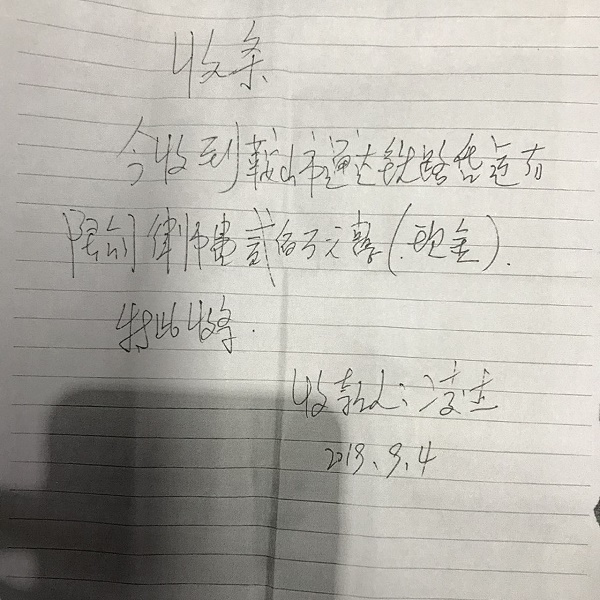 收条
今收到鞍山市通达铁路货运有
限公司人民币贰百万元整(现金).
特此收条.
收款人:
2019.9.4